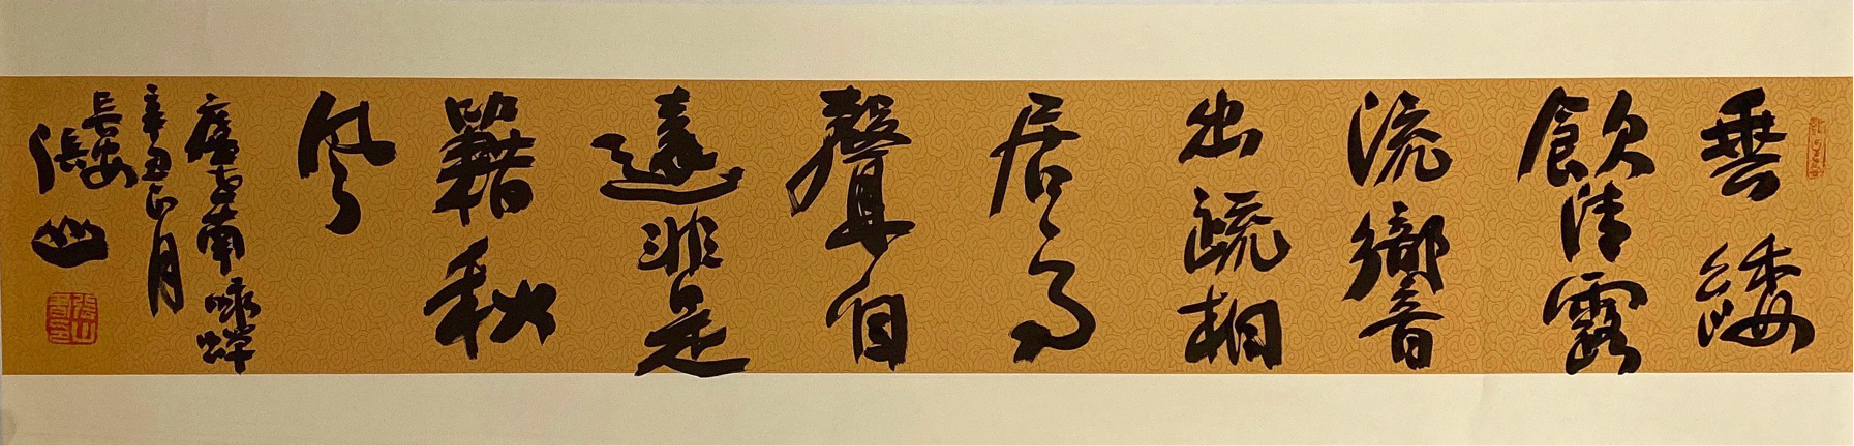 垂緌
飲清露
流響
出疏桐
居高
聲自
遠非是
籍秋
風
虞世南咏蟬
辛丑月
長安
張山